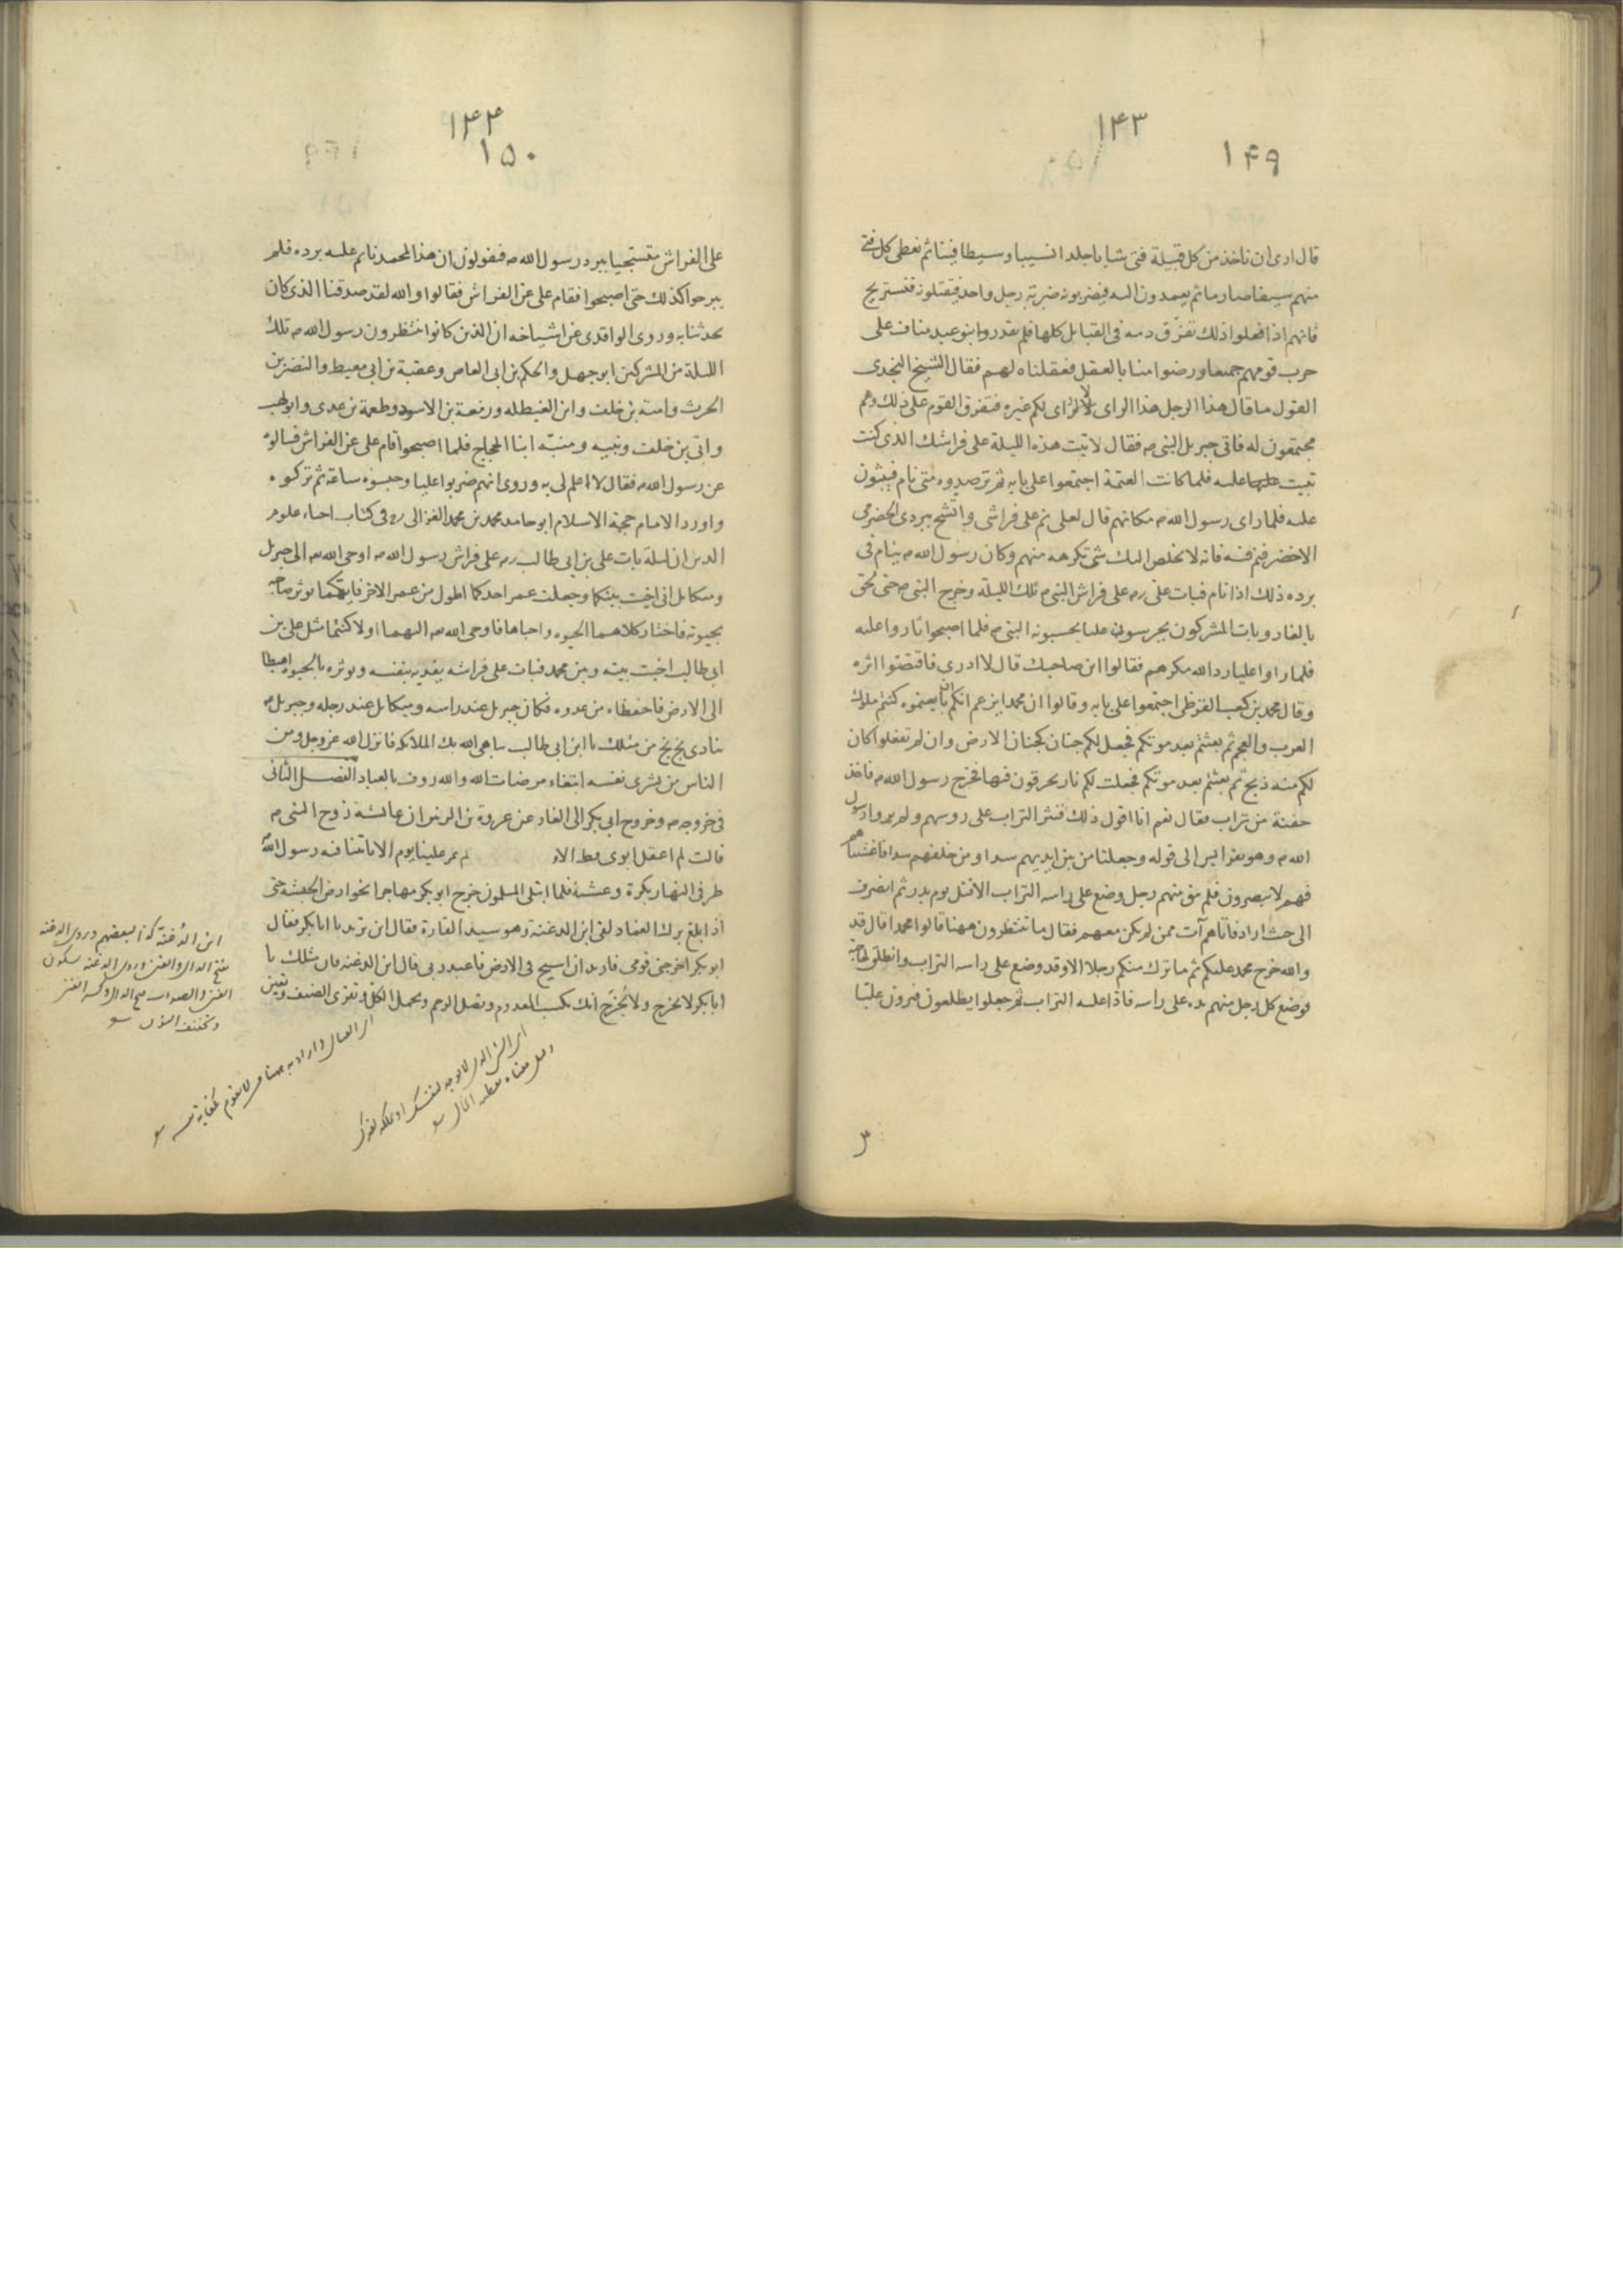 ١٤٣
١٤٩
قال ارى ان ناخذ من كل قبيلة فتى شابا جلدا نسيبا وسيطا فينا ثم نعطى كل فتى
منهم سيفا صارما ثم يعمدون اليه فيضربونه ضربة رجل واحد فيقتلونه فنستريح
فانهم اذا فعلوا ذلك تفرق دمه فى القبايل كلها فلم يقدروا بنو عبد مناف على
حرب قومهم جميعا ورضوا منا بالعقل فعقلناه لهم فقال الشيخ النجدى
القول ما قال هذا الرجل هذا الراى لا ارى لكم غيره فتفرق القوم على ذلك وهم
مجتمعون له فاتى جبريل النبى م فقال لا تبت هذه الليلة على فراشك الذى كنت
تبيت عليه فلما كانت العتمة اجتمعوا على بابه ثم ترصدوه متى نام فيثبون
عليه فلما راى رسول الله م مكانهم قال لعلى نم على فراشى واتشح ببردى الحضرمى
الاخضر فنم فيه فانه لا يخلص اليك شئ تكرهه منهم وكان رسول الله م ينام فى
برده ذلك اذا نام فبات على رم على فراش النبى م تلك الليلة وخرج النبى م حتى لحق
بالغار وبات المشركون يحرسون عليا يحسبونه النبى م فلما اصبحوا ثاروا عليه
فلما راوا عليا رد الله مكرهم فقالوا اين صاحبك قال لا ادرى فاقتصوا اثره
وقال محمد بن كعب القرظى اجتمعوا على بابه وقالوا ان محمدا يزعم انكم ان تابعتموه كنتم ملوك
العرب والعجم ثم بعثتم بعد موتكم فجعل لكم جنان كجنان الارض وان لم تفعلوا كان
لكم منه ذبح ثم بعثتم بعد موتكم فجعلت لكم نار تحرقون فيها فخرج رسول الله م فاخذ
حفنة من تراب فقال نعم انا اقول ذلك فنثر التراب على روسهم ولم يروا رسول
الله م وهو يقرا يس الى قوله وجعلنا من بين ايديهم سدا ومن خلفهم سدا فاغشيناهم
فهم لا يبصرون فلم يبق منهم رجل وضع على راسه التراب الا قتل يوم بدر ثم انصرف
الى حيث اراد فاتاهم آت ممن لم يكن معهم فقال ما تنتظرون ههنا قالوا محمدا قال قد
والله خرج محمد عليكم ثم ما ترك منكم رجلا الا وقد وضع على راسه التراب وانطلق لحاجته
فوضع كل رجل منهم يده على راسه فاذا عليه التراب ثم جعلوا يطلعون فيرون عليا
على
١٤٤
١٥٠
على الفراش متسجيا ببرد رسول الله م فيقولون ان هذا لمحمد نائم عليه برده فلم
يبرحوا كذلك حتى اصبحوا فقام على عن الفراش فقالوا والله لقد صدقنا الذى كان
يحدثنا به وروى الواقدى عن اشياخه ان الذين كانوا ينتظرون رسول الله م تلك
الليلة من المشركين ابو جهل والحكم بن ابى العاص وعقبة بن ابى معيط والنضر بن
الحرث وامية بن خلف وابن الغيطله وزمعة بن الاسود وطعمة بن عدى وابو لهب
وابى بن خلف ونبيه ومنبه ابنا الحجاج فلما اصبحوا قام على عن الفراش فسالوه
عن رسول الله م فقال لا اعلم لى به وروى انهم ضربوا عليا وحبسوه ساعة ثم تركوه
واورد الامام حجة الاسلام ابو حامد محمد بن محمد الغزالى رح فى كتاب احياء علوم
الدين ان ليلة بات على بن ابى طالب رم على فراش رسول الله م اوحى الله تع الى جبريل
وميكايل انى اخيت بينكما وجعلت عمر احدكما اطول من عمر الاخر فايكما يوثر صاحبه
بحيوته فاختار كلاهما الحيوه واحباها فاوحى الله تع اليهما اولا كنتما مثل على بن
ابى طالب اخيت بينه وبين محمد فبات على فراشه يفديه بنفسه ويوثره بالحيوة اهبطا
الى الارض فاحفظاه من عدوه فكان جبريل عند راسه وميكايل عند رجله وجبريل م
ينادى بخ بخ من مثلك يا ابن ابى طالب يباهى الله بك الملائكه فانزل الله عز وجل ومن
الناس من يشرى نفسه ابتغاء مرضات الله والله روف بالعباد الفصل الثانى
فى خروجه م وخروج ابى بكر الى الغار عن عروة بن الزبير ان عائشة زوج النبى م
قالت لم اعقل ابوى قط الا و لم يمر علينا يوم الا ياتينا فيه رسول الله
طرفى النهار بكرة وعشية فلما ابتلى المسلمون خرج ابو بكر مهاجرا نحو ارض الحبشة حتى
اذا بلغ برك الغماد لقى ابن الدغنة وهو سيد القارة فقال اين تريد يا ابا بكر فقال
ابو بكر اخرجنى قومى فاريد ان اسيح فى الارض فاعبد ربى قال ابن الدغنة فان مثلك يا
ابا بكر لا يخرج ولا يخرج انك تكسب المعدوم وتصل الرحم وتحمل الكل وتقرى الضيف وتعين
ابن الدغنة كذا لبعضهم وروى الدغنه
بفتح الدال والغين وروى الدغنه بسكون
الغين والصواب فتح الدال وكسر الغين
وتخفيف النون